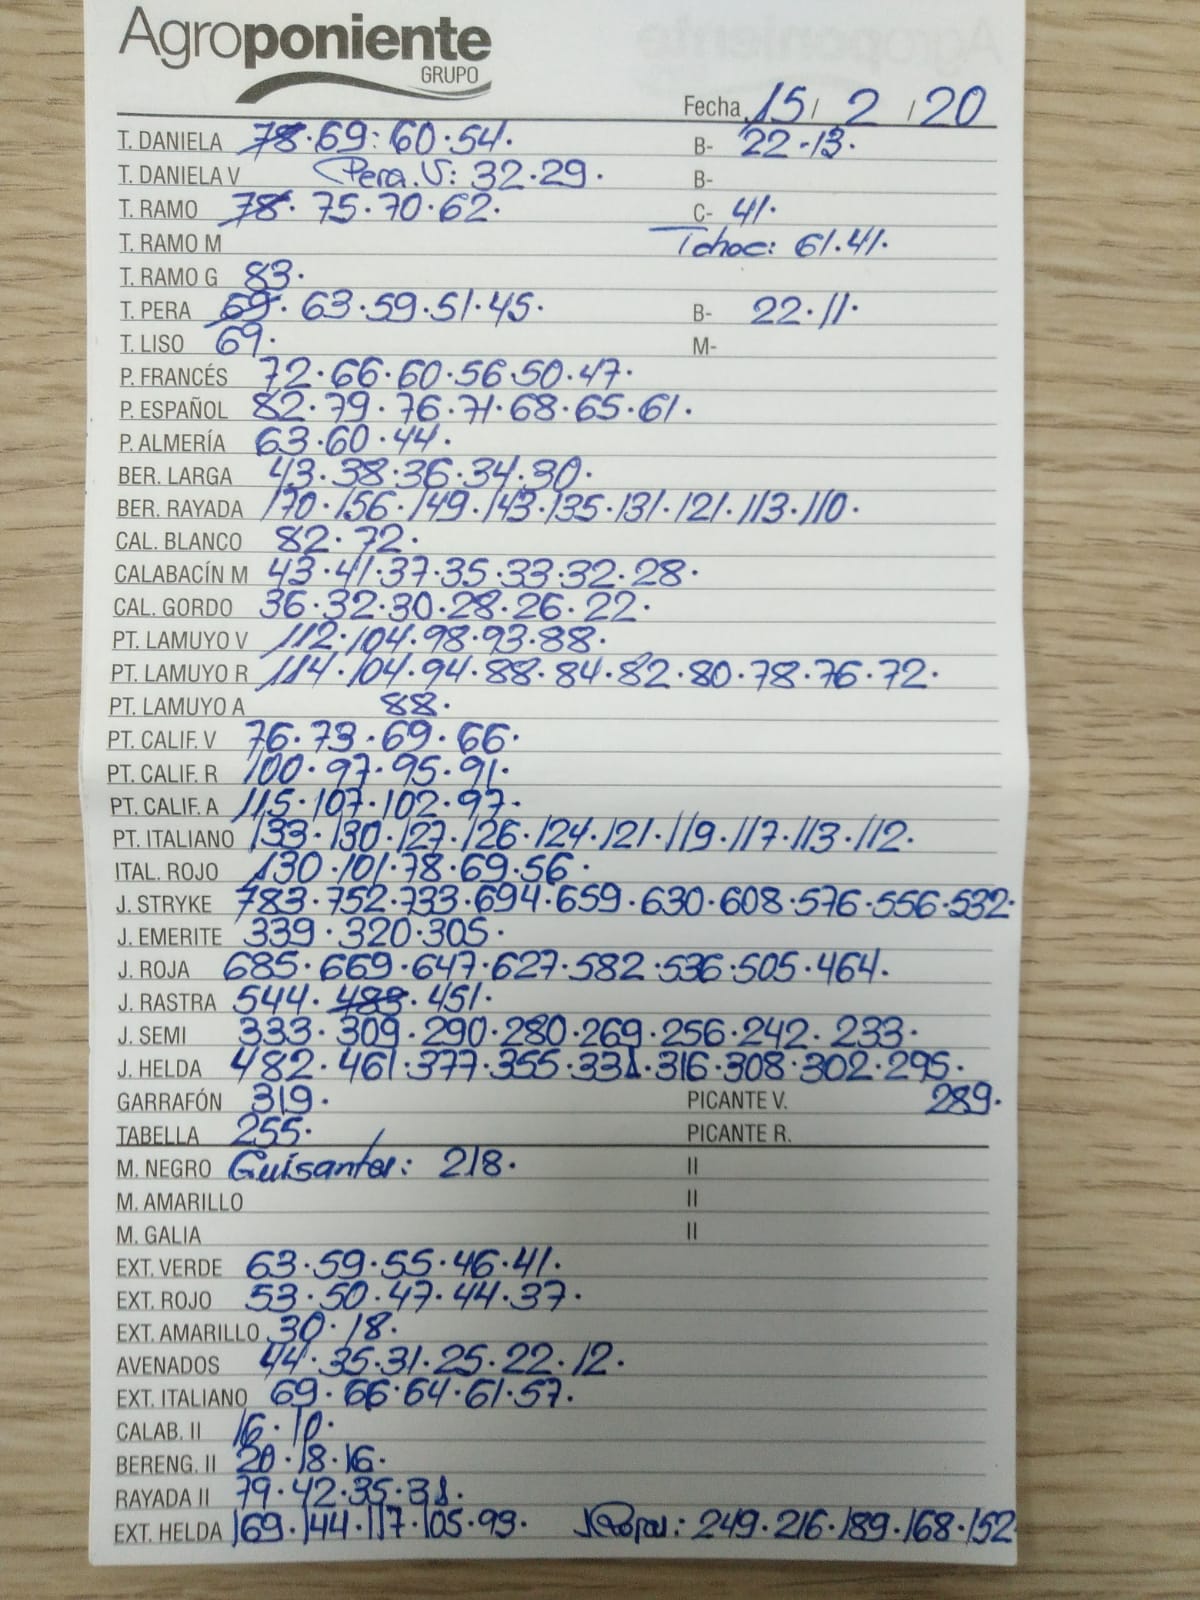 Agroponiente
GRUPO
Fecha 15 / 2 / 20
T. DANIELA 78·69:60·54. B- 22·13.
T. DANIELA V Pera.V: 32·29. B-
T. RAMO 78·75·70·62. C- 41.
T. RAMO M Tchoc: 61.41.
T. RAMO G 83.
T. PERA 69·63·59·51·45. B- 22·11.
T. LISO 69. M-
P. FRANCÉS 72·66·60·56·50·47.
P. ESPAÑOL 82·79·76·71·68·65·61.
P. ALMERÍA 63·60·44.
BER. LARGA 43·38·36·34·30.
BER. RAYADA 170·156·149·143·135·131·121·113·110.
CAL. BLANCO 82·72.
CALABACÍN M 43·41·37·35·33·32·28.
CAL. GORDO 36·32·30·28·26·22.
PT. LAMUYO V 112·104·98·93·88.
PT. LAMUYO R 114·104·94·88·84·82·80·78·76·72.
PT. LAMUYO A 88.
PT. CALIF. V 76·73·69·66.
PT. CALIF. R 100·97·95·91.
PT. CALIF. A 115·107·102·97.
PT. ITALIANO 133·130·127·126·124·121·119·117·113·112.
ITAL. ROJO 130·101·78·69·56.
J. STRYKE 783·752·733·694·659·630·608·576·556·532.
J. EMERITE 339·320·305.
J. ROJA 685·669·647·627·582·536·505·464.
J. RASTRA 544·483·451.
J. SEMI 333·309·290·280·269·256·242·233.
J. HELDA 482·461·377·355·331·316·308·302·295.
GARRAFÓN 319. PICANTE V. 289.
TABELLA 255. PICANTE R.
M. NEGRO Guisantes: 218. II
M. AMARILLO II
M. GALIA II
EXT. VERDE 63·59·55·46·41.
EXT. ROJO 53·50·47·44·37.
EXT. AMARILLO 30·18.
AVENADOS 44·35·31·25·22·12.
EXT. ITALIANO 69·66·64·61·57.
CALAB. II 16·10.
BERENG. II 20·18·16.
RAYADA II 79·42·35·31.
EXT. HELDA 169·144·117·105·99. 249·216·189·168·152